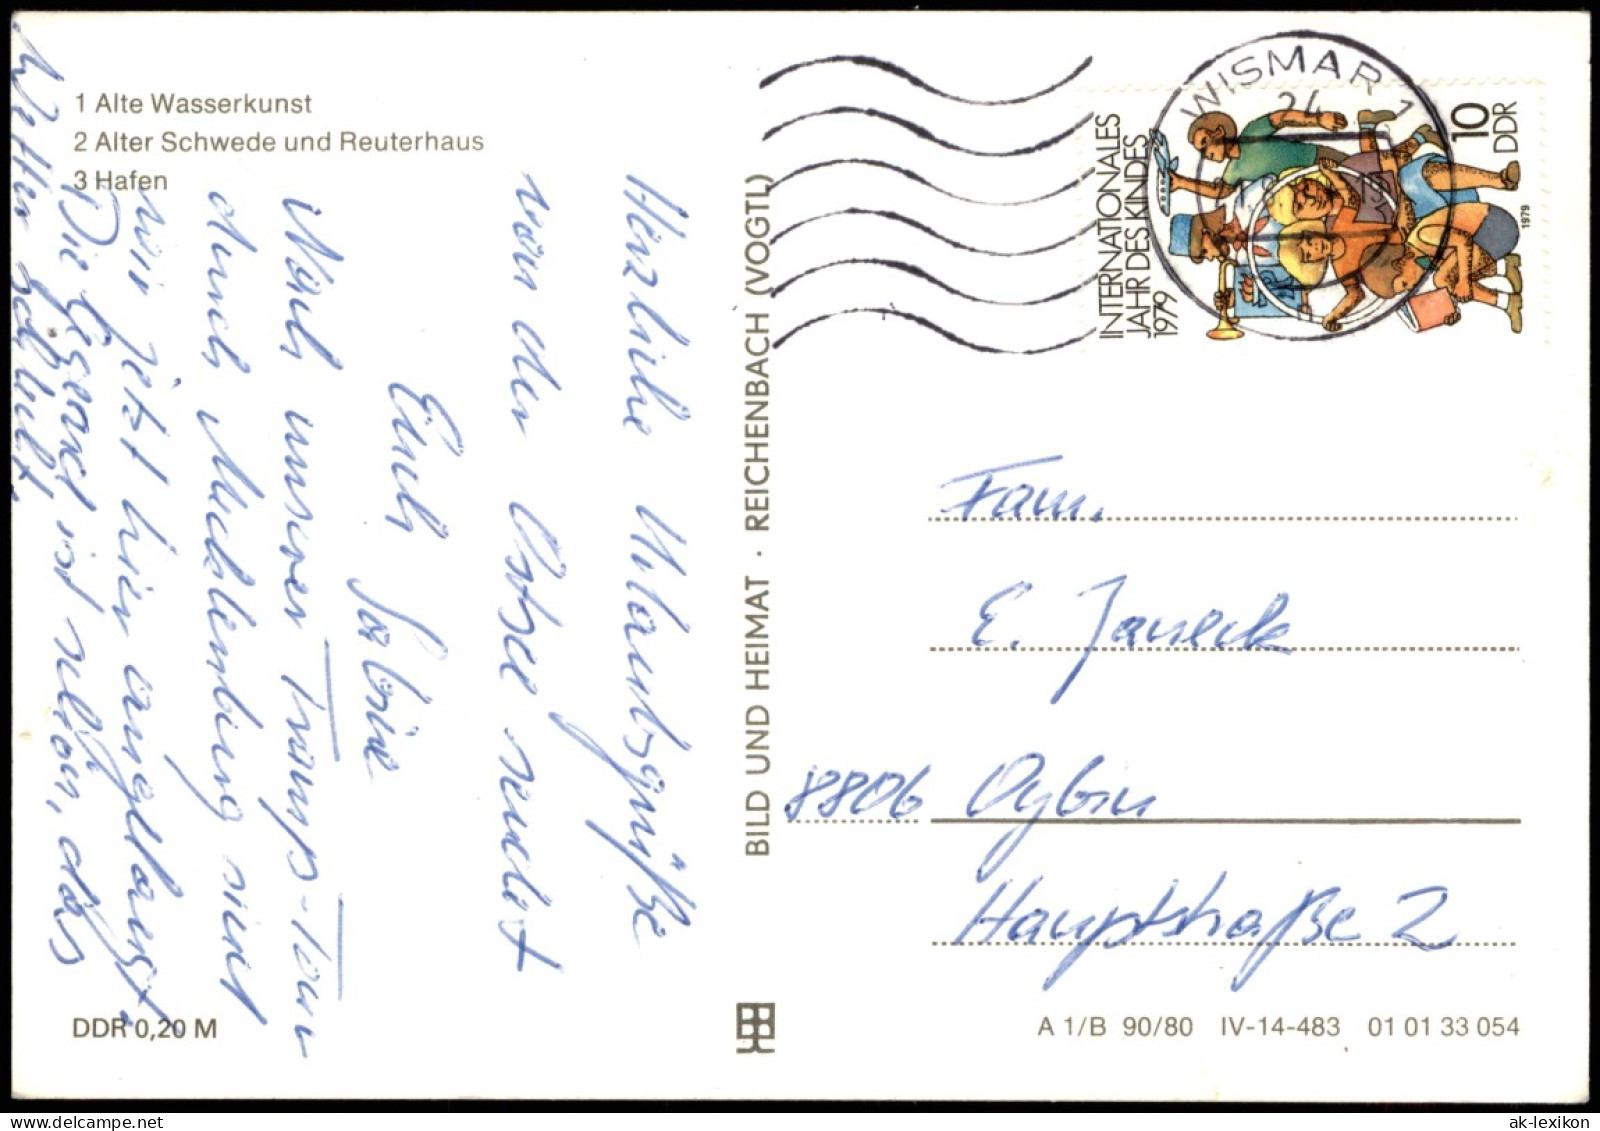 1 Alte Wasserkunst
2 Alter Schwede und Reuterhaus
3 Hafen
Herzliche Urlaubsgrüße
von der Ostsee sendet
Euch Sabine
Nach unserer Tramp-Tour
durch Mecklenburg sind
wir jetzt hier angelangt.
Die Gegend ist schön, das
Wetter schlecht.
DDR 0,20 M
BILD UND HEIMAT · REICHENBACH (VOGTL)
WISMAR 1
24
INTERNATIONALES
JAHR DES KINDES
1979
10
DDR
1979
Fam.
E. Janeck
8806 Oybin
Hauptstraße 2
A 1/B 90/80 IV-14-483 01 01 33 054
ak-lexikon